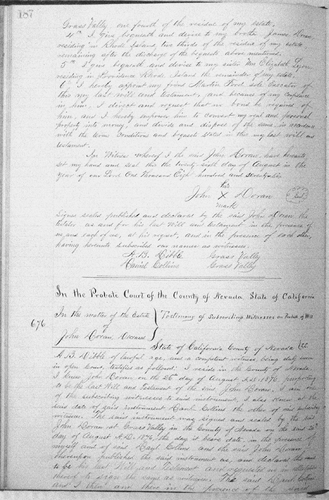 107
Grass Valley one fourth of the residue of my estate.
4th I give bequeath and devise to my brother James Horan
residing in Rhode Island two thirds of the residue of my estate
remaining after the discharge of the bequests above mentioned.
5th I give bequeath and devise to my sister Mrs Elizabeth
residing in Providence Rhode Island the remainder of my estate.
6th I hereby appoint my friend Martin Ford sole Executor of
this my last will and testament and because of my confidence
in him, I direct and request that no bond be required of
him, and I hereby authorize him to convert my real and personal
property into money and divide and dispose of the same in accordance
with the terms conditions and bequests stated in this my last will and
testament.
In Witness whereof I the said John Horan have hereunto
set my hand and seal this the twenty sixth day of August in the
year of our Lord One Thousand Eight hundred and seventy six
his
John X Horan
mark
Signed sealed published and declared by the said John Horan the
testator as and for his last Will and testament in the presence of
us, and each of us, who at his request, and in the presence of each other
having hereunto subscribed our names as witnesses.
A. B. Dibble Grass Valley
David Collins Grass Valley
In the Probate Court of the County of Nevada, State of California
676
In the matter of the Estate
of
John Horan Deceased
Testimony of Subscribing Witnesses on Probate of Will
State of California County of Nevada ss
A. B. Dibble of lawful age, and a competent witness being duly sworn
in open Court testifies as follows. I reside in the County of Nevada.
I knew John Horan, on the 26th day of August A.D. 1876,
to be the last Will and Testament of the said John Horan, I am one
of the subscribing witnesses to said instrument, I also knew at the
time of said instrument David Collins the other of said subscribing
witnesses. The said instrument was signed and sealed by the said
John Horan at Grass Valley in the County of Nevada on the said 26th
day of August A.D. 1876, the day it bears date, in the presence of
myself and of said David Collins and the said John Horan
thereupon published the said instrument as, and declared the same
to be his last Will and Testament and requested us in
to sign the same as witnesses. The said David Collins
and I then and there in the presence of the